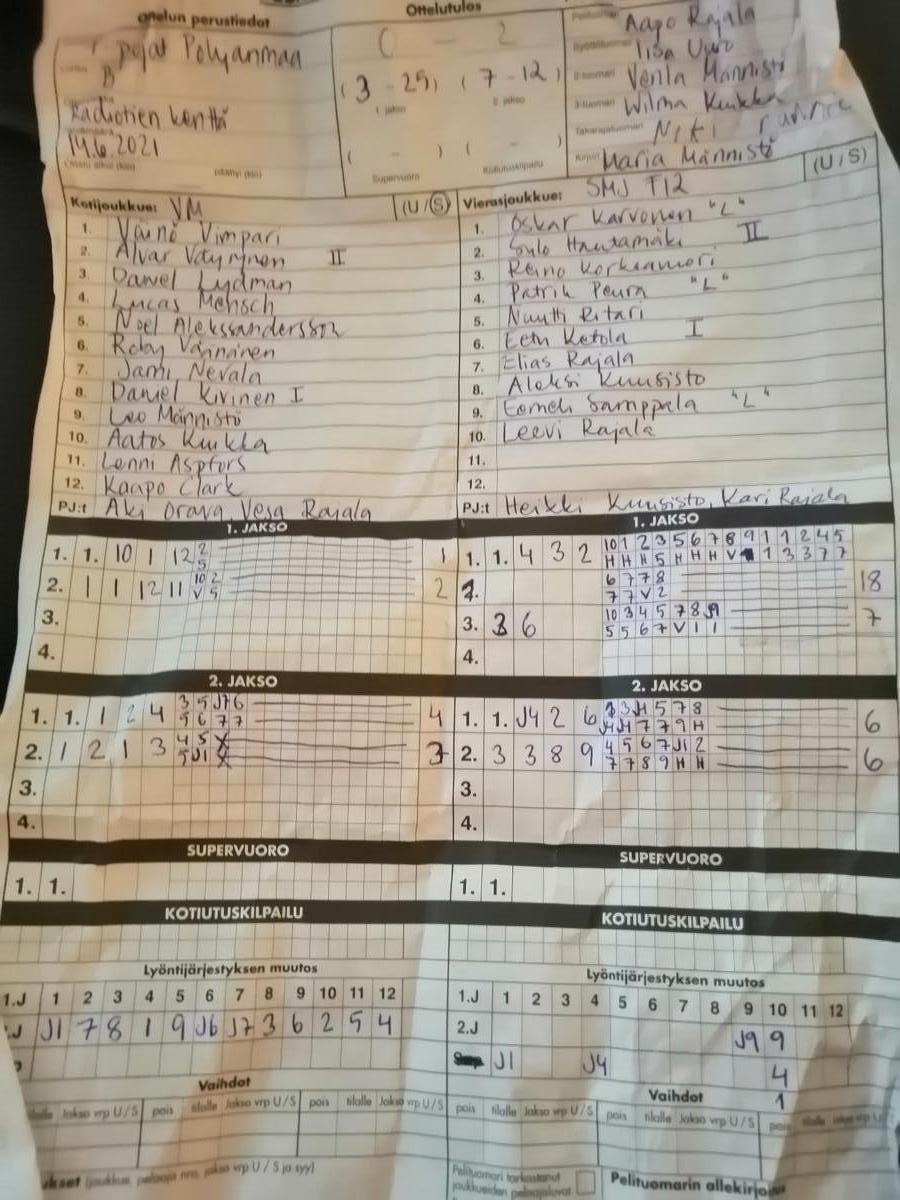 Ottelun perustiedot
Ottelutulos
B pojat Pohjanmaa
0 - 2
(3 - 25) (7 - 12)
1. jakso 2. jakso
Radiotien kenttä
14.6.2021
( - ) ( - )
Supervuoro Kotiutuskilpailu
Aapo Rajala
Iisa Uuro
Venla Männistö
Wilma Kuikka
Niki
Maria Männistö
Kotijoukkue: VM (U/S)
1. Väinö Vimpari
2. Alvar Väyrynen II
3. Daniel Lydman
4. Lucas Mensch
5. Noel Alekssandersson
6. Roby Väänänen
7. Jami Nevala
8. Daniel Kivinen I
9. Leo Männistö
10. Aatos Kuikka
11. Lenni Aspfors
12. Kaapo Clark
PJ:t Aki Orava, Vesa Rajala
Vierasjoukkue: SMJ T12 (U/S)
1. Oskar Karvonen "L"
2. Sulo Hautamäki II
3. Reino Korkeamori
4. Patrik Peura "L"
5. Ritari
6. Eetu Ketola I
7. Elias Rajala
8. Aleksi Kuusisto
9. Eemeli Samppala "L"
10. Leevi Rajala
11.
12.
PJ:t Heikki Kuusisto, Kari Rajala
1. JAKSO
1. 1. 10 1 12 2 1
5
2. 1 1 12 11 10 2 2
V 5
3.
4.
1. JAKSO
1. 1. 4 3 2 10 1 2 3 5 6 7 8 9 1 1 2 4 5
H H H 5 H H H V 1 3 3 7 7
6 7 7 8 18
7 7 V 2
3. 3 6 10 3 4 5 7 8 J9 7
5 5 6 7 V 1 1
4.
2. JAKSO
1. 1. 1 2 4 3 5 J7 6 4
5 6 7 7
2. 1 2 1 3 4 5 X 3
5 J1 X
3.
4.
2. JAKSO
1. 1. J4 2 6 3 J1 5 7 8 6
7 7 9 H
2. 3 3 8 9 4 5 6 7 J1 2 6
7 7 8 9 H H
3.
4.
SUPERVUORO
1. 1.
SUPERVUORO
1. 1.
KOTIUTUSKILPAILU
KOTIUTUSKILPAILU
Lyöntijärjestyksen muutos
1.J 1 2 3 4 5 6 7 8 9 10 11 12
.J J1 7 8 1 9 J6 J7 3 6 2 5 4
Lyöntijärjestyksen muutos
1.J 1 2 3 4 5 6 7 8 9 10 11 12
2.J J9 9
J1 J4 4
1
Vaihdot
tilalle Jakso vrp U/S pois tilalle Jakso vrp U/S pois tilalle Jakso vrp U/S
Vaihdot
pois tilalle Jakso vrp U/S pois tilalle Jakso vrp U/S pois tilalle
(joukkue, pelaaja nro, jakso vrp U / S ja syy)
Pelituomari tarkastanut
joukkueiden pelaajaluvat
Pelituomarin allekirjoitus